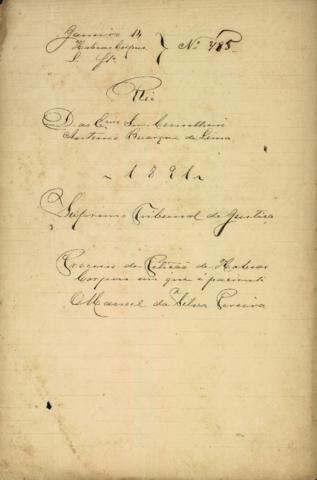 Janeiro 14
Habeas Corpus } Nº 785
Rio
D. ao Exmo Snr Conselheiro
Antonio Buarque de Lima
1891
Supremo Tribunal de Justiça
Processo de Petição de Habeas
Corpus em que é paciente
Manoel da Silva Pereira